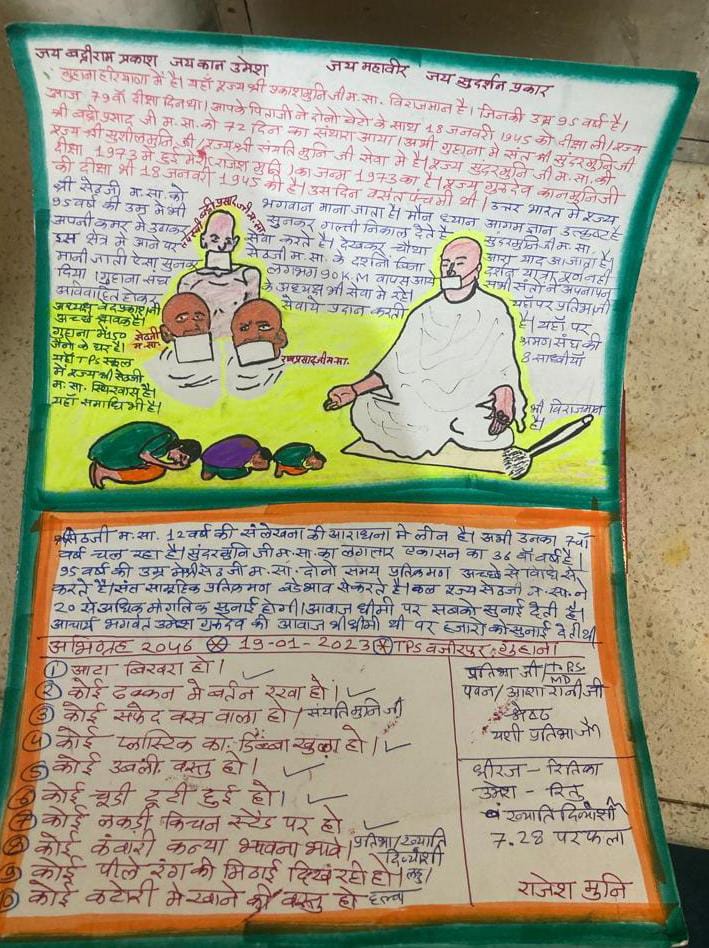 जय बद्रीराम प्रकाश जय कान उमेश जय महावीर जय सुदर्शन प्रकार
गुहाना हरियाणा में है। यहाँ पूज्य श्री प्रकाशमुनि जी म.सा. विराजमान है। जिनकी उम्र 95 वर्ष है।
आज 79वाँ दीक्षा दिन था। आपके पिताजी ने दोनो बेटो के साथ 18 जनवरी 1945 को दीक्षा ली। पूज्य
श्री बद्रीप्रसाद जी म.सा. को 72 दिन का संथारा आया। अभी गुहाना में संत श्री सुंदरमुनि जी
पूज्य श्री सुशीलमुनि जी, पूज्य श्री संयति मुनि जी सेवा में है। पूज्य सुंदरमुनि जी म.सा. की
दीक्षा 1973 में हुई मेरा (राजेश मुनि) का जन्म 1973 का है। पूज्य गुरुदेव कानमुनिजी
की दीक्षा भी 18 जनवरी 1945 की है। उस दिन बसंत पंचमी थी।
श्री सेठजी म.सा. को भगवान माना जाता है। मौन ध्यान आगम ज्ञान उत्कृष्ट है
उत्तर भारत में पूज्य
95 वर्ष की उम्र में भी सुनकर गल्ती निकाल देते है सुंदरमुनि जी म.सा.
अपनी कमर में उठाकर सेवा करते है। देखकर चौथा आरा याद आजाता है
इस क्षेत्र में आने पर सेठजी म.सा. के दर्शनो बिना दर्शन यात्रा पूर्ण नही
मानी जाती ऐसा सुनकर लगभग 90 K.M वापस आये सभी संतो ने अपनापन
दिया। गुहाना संघ के अध्यक्ष भी सेवा में रहे। यहाँ पर प्रतिभा जी
अविवाहित होकर सेवाये प्रदान करती है। यहाँ पर
श्रमण संघ की
8 साध्वीयाँ
भी विराजमान
है।
अच्छे श्रावक है।
गुहाना में 150
जैनो के घर है।
यहाँ TPS स्कूल
में पूज्य श्री सेठजी
म.सा. स्थिरवास है।
यहाँ समाधि भी है।
तपस्वी बद्री प्रसाद जी म.सा
सेठजी
म.सा.
रामप्रसाद जी म.सा.
सेठजी म.सा. 12 वर्ष की संलेखना की आराधना में लीन है। अभी उनका 7वाँ
वर्ष चल रहा है। सुंदरमुनि जी म.सा. का लगातार एकासन का 36 वाँ वर्ष है।
95 वर्ष की उम्र में श्री सेठजी म.सा. दोनो समय प्रतिक्रमण अच्छे से विधि से
करते है। संत सामूहिक प्रतिक्रमण बड़े भाव से करते है। कल पूज्य सेठजी म.सा. ने
20 से अधिक मांगलिक सुनाई होगी। आवाज धीमी पर सबको सुनाई देती है।
आचार्य भगवंत उमेश गुरुदेव की आवाज भी धीमी थी पर हजारो को सुनाई देती थी
अभिग्रह 2046 19-01-2023 TPS वजीरपुर, गुहाना
① आटा बिखरा हो। ✓
② कोई ढक्कन में बर्तन रखा हो। ✓
③ कोई सफेद वस्त्र वाला हो / संयति मुनि जी
④ कोई प्लास्टिक का डिब्बा खुला हो। ✓
⑤ कोई उबली वस्तु हो। ✓
⑥ कोई चूडी टूटी हुई हो। ✓
⑦ कोई लकड़ी किचन स्टैंड पर हो ✓
⑧ कोई कंवारी कन्या भावना भावे। प्रतिभा/ख्याति
दिव्यांशी
⑨ कोई पीले रंग की मिठाई दिख रही हो। लड्डू/
⑩ कोई कटोरी में खाने की वस्तु हो हलवा
प्रतिभा जी / T.P.S.
MD
पवन / आशा रानी जी
यशी प्रतिभा जैन
धीरज - रितिका
उमेश - रितु
ख्याति दिव्यांशी
7.28 पर फला
राजेश मुनि